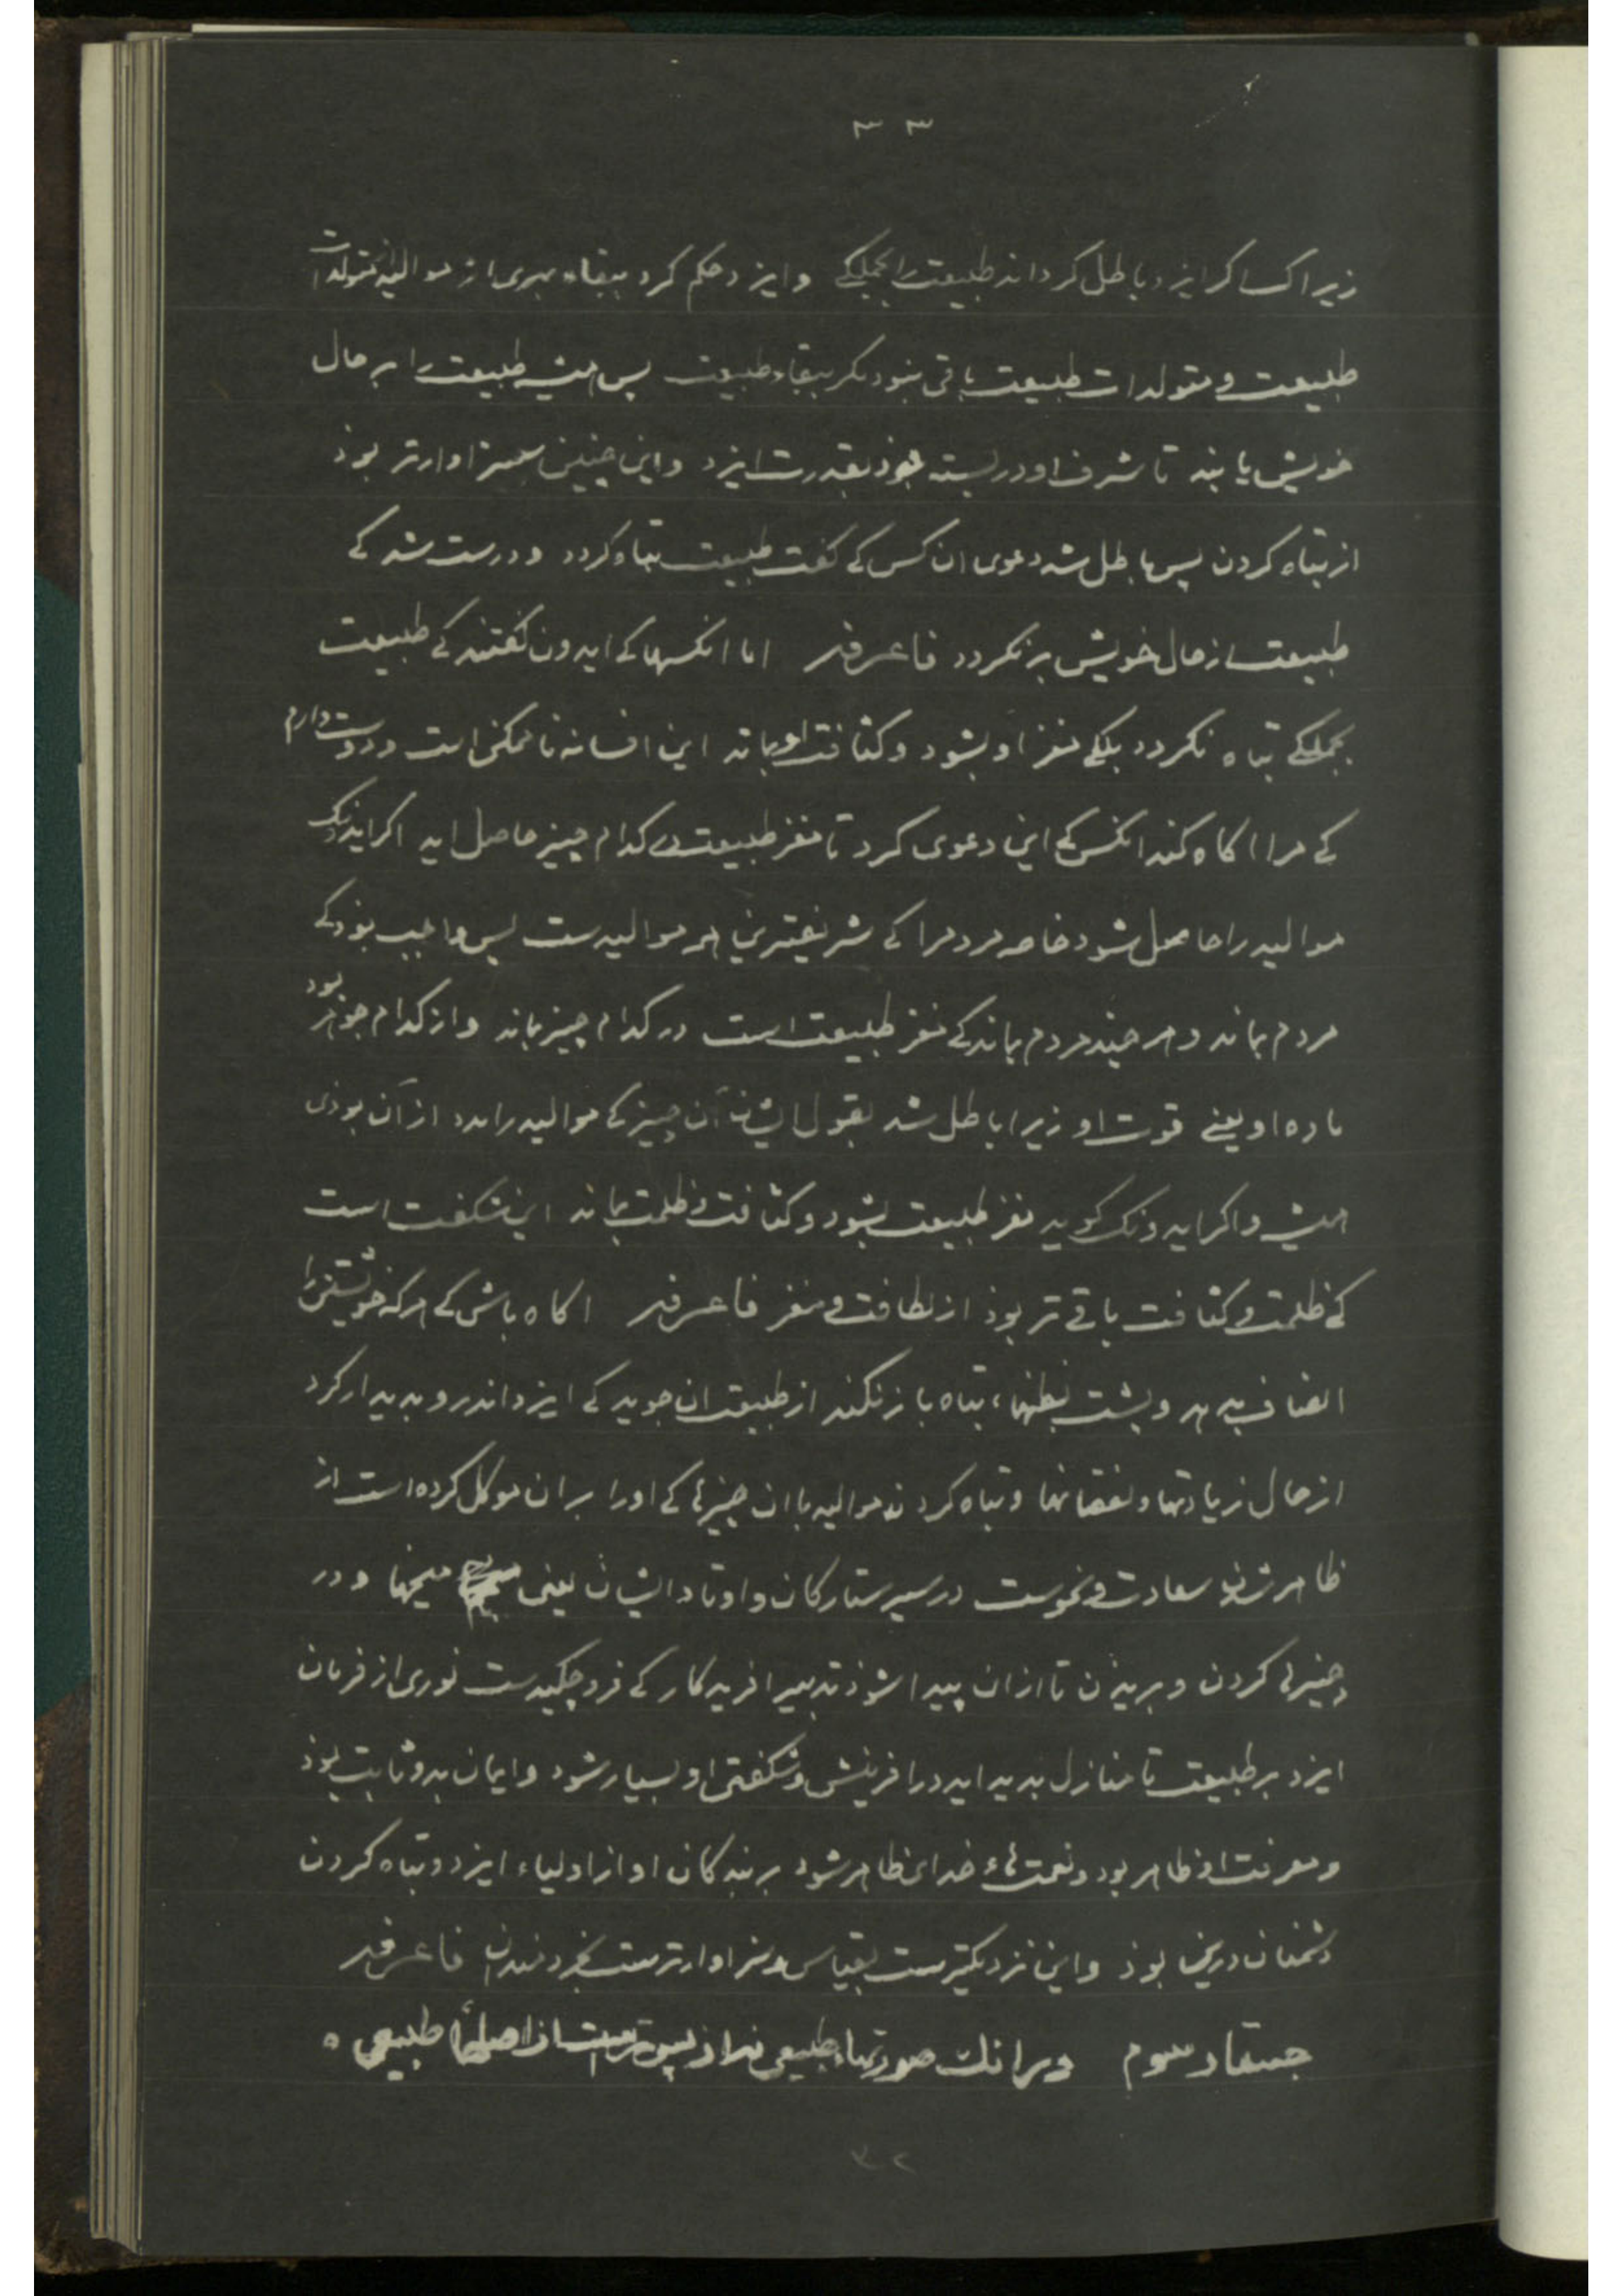 ۳۳
زیرا کسا کر ایزد باطل کرداند طبیعت را بجملکی وایزد حکم کرد ببقاء از موالید متولدات
طبیعت و متولدات طبیعت باقی نبود مکر ببقاء طبیعت پس طبیعت را بر حال
خویش یابند تا شرف او درلسته بوذ بقدرت ایزد واین چنین سزاوارتر بوذ
از تباه کردن پس باطل شد دعوی ان کس کی کفت طبیعت تباه کردد و درست شد کی
طبیعت از حال خویش بر نکردد فاعرفه اما انکسها کی ایدون کفتند کی طبیعت
بجملکی تباه نکردد بلکی مغز او بشود و کثافت او بماند این افسانه نا ممکن است و دوست دارم
کی مرا اکاه کند انکس کی این دعوی کرد تا مغز طبیعت کدام چیز حاصل اید اکر ایذونک
موالید را حاصل شود خاصه مردمرا کی شریفترین هر موالیدست پس واجب بوذ کی
مردم بماند و هر چند مردم بماند کی مغز طبیعت است در کدام چیز بماند و از کدام جوهر بود
ماده او یعنی قوت او زیرا باطل شد بقول ایشان آن چیز کی موالید را مدد از آن بوذی
همیشه و اکر ایدونک کوید مغز طبیعت بشود و کثافت و ظلمت بماند این شکفت است
کی ظلمت و کثافت باقی تر بوذ از لطافت و مغز فاعرفه اکاه باش کی هرکه خویشتن را
انصاف بدهد و تباه باز نکند از طبیعت ان جوید کی ایزد اندرو بدیدار کرد
از حال زیادتها و نقصانها و تباه کردن موالید با ان چیزهای کی اورا بر ان موکل کرده است از
ظاهر شدن سعادت و نحوست در سیر ستارکان و اوتاد ایشان یعنی میخها و در
چیزی کردن و بریدن تا ازان پیدا شوذ تدبیر افریدکار کی فرو چکیدست نوری از فرمان
ایزد بر طبیعت تا منازل بدید اید در افرینش و شکفتی او بسیار شود و ایمان بدو ثابت بوذ
و معرفت او ظاهر بود و نعمت هاء خدای ظاهر شود بر بندکان او از اولیاء ایزد و تباه کردن
دشمنان درین بوذ واین نزدیکترست بقیاس و سزاوارترست بخردمندان فاعرفه
جستار سوم در انک صورتهاء طبیعی از پس ترست از اصلهاء طبیعی ه
۳۲